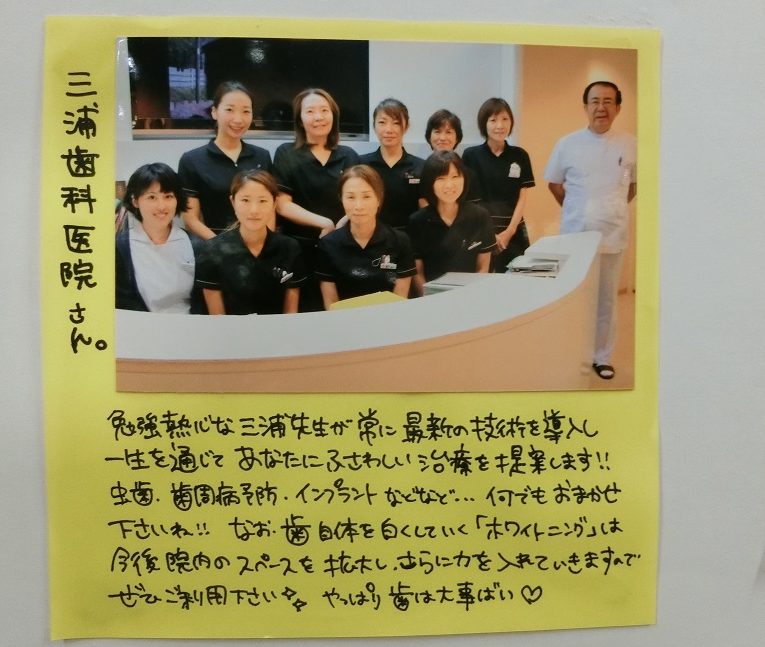 三浦歯科医院さん。
勉強熱心な三浦先生が常に最新の技術を導入し
一生を通じてあなたにふさわしい治療を提案します!!
虫歯・歯周病予防・インプラントなどなど… 何でもおまかせ
下さいね!! なお・歯自体を白くしていく「ホワイトニング」は
今後院内のスペースを拡大し、さらに力を入れていきますので
ぜひご利用下さい やっぱり歯は大事ばい♡